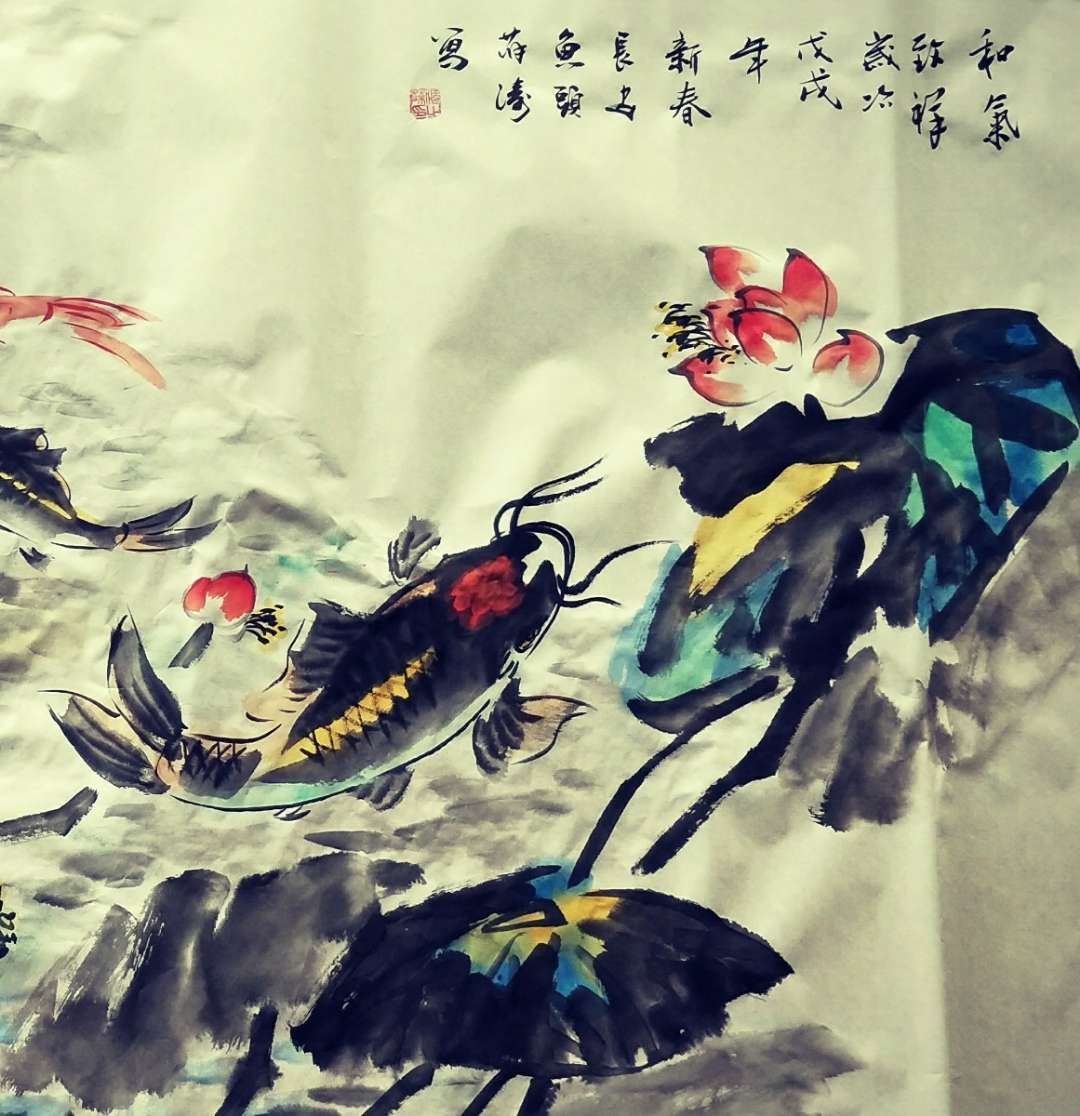 和氣
致祥
歲次
戊戌
年
新春
長安
魚頭
薛濤
寫